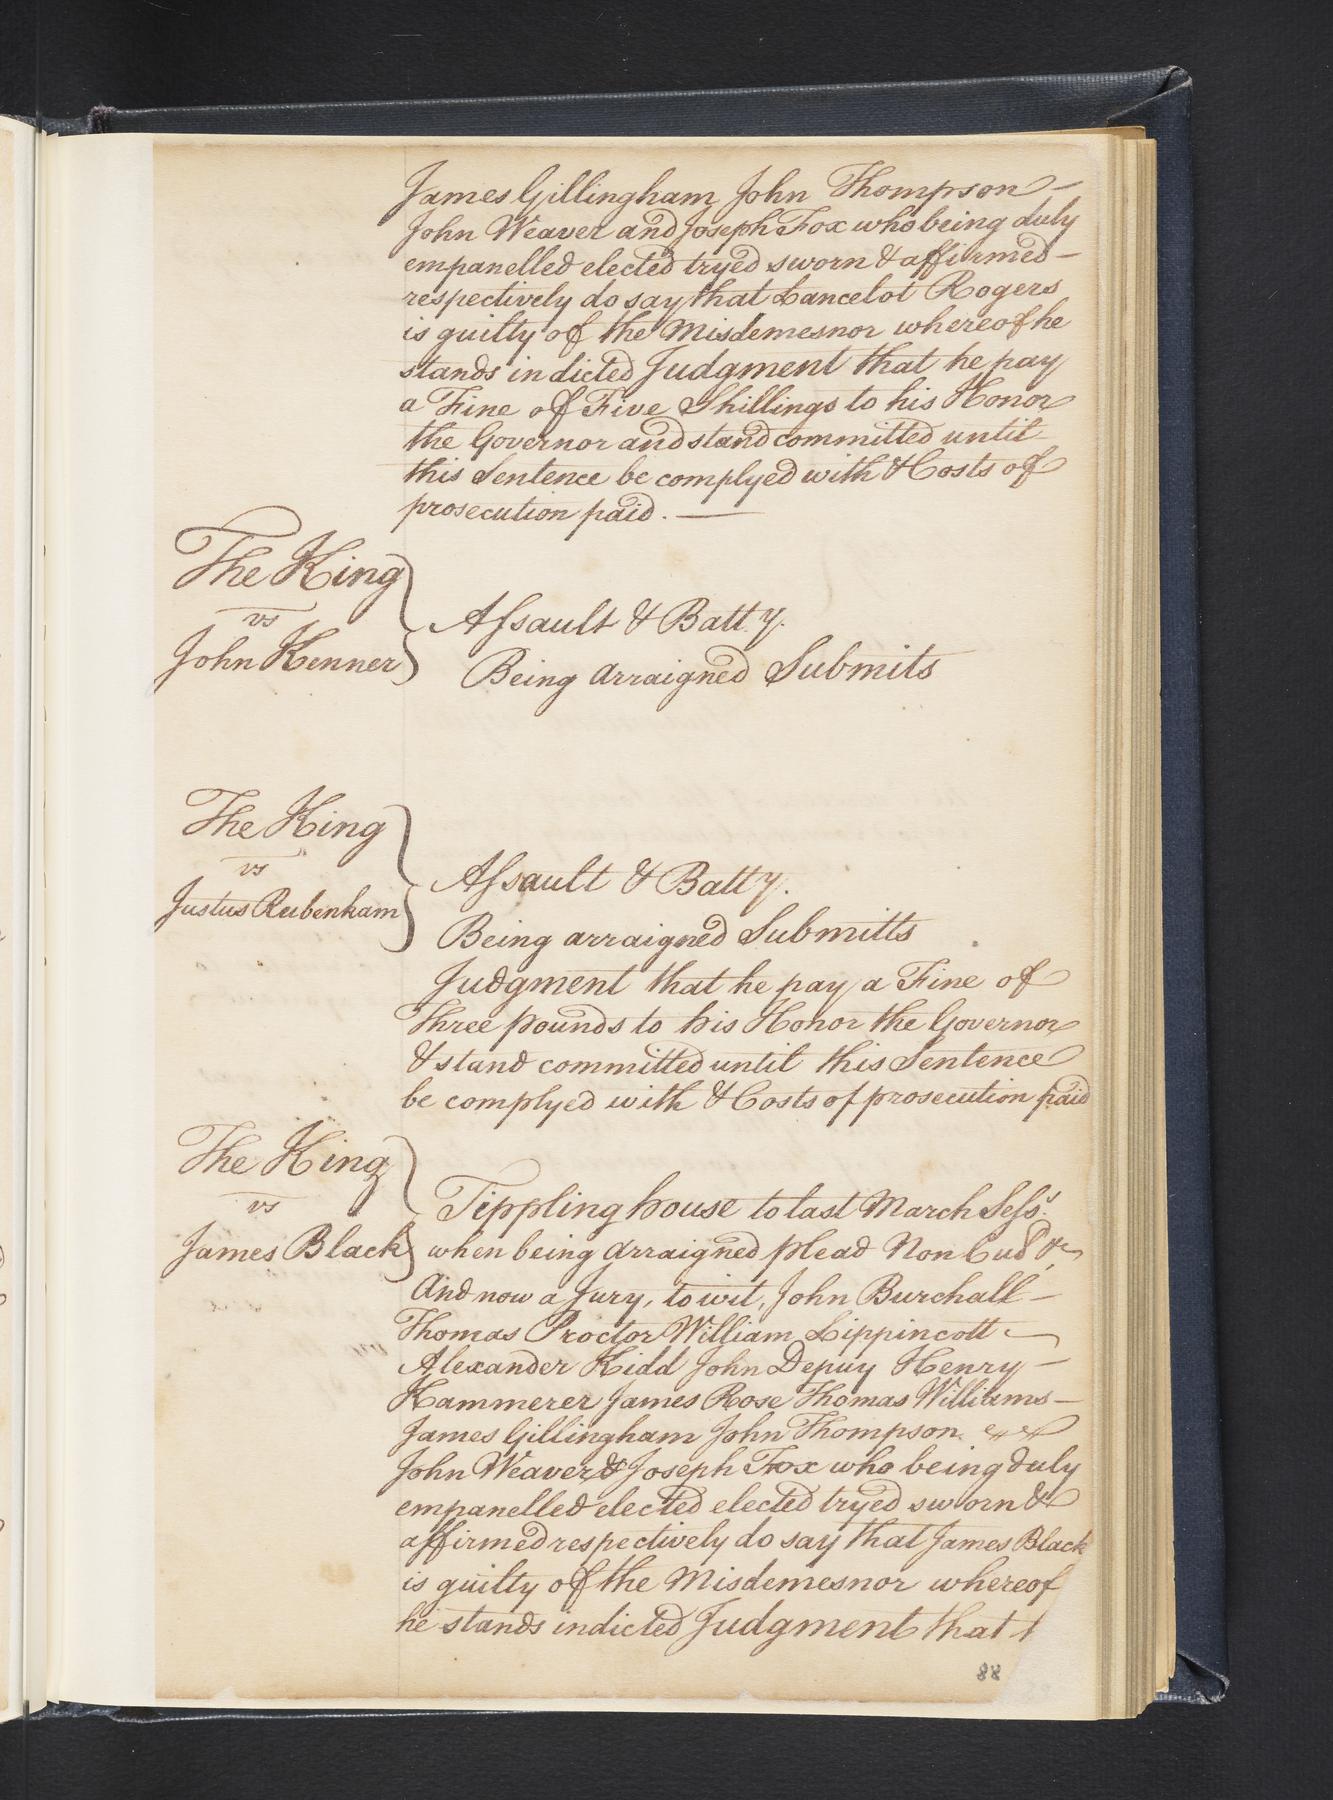 James Gillingham John Thompson —
John Weaver and Joseph Fox who being duly
empanelled elected tryed sworn & affirmed —
respectively do say that Lancelot Rogers
is guilty of the Misdemesnor whereof he
stands indicted Judgment that he pay
a Fine of Five Shillings to his Honor
the Governor and stand committed until
this Sentence be complyed with & Costs of
prosecution paid. —
The King
vs
John Kenner
Assault & Batt.y.
Being arraigned Submits
The King
vs
Justus Rubenkam
Assault & Batty.
Being arraigned Submitts
Judgment that he pay a Fine of
Three pounds to his Honor the Governor
& stand committed until this Sentence
be complyed with & Costs of prosecution paid
The King
vs
James Black
Tippling house to last March Sess.s
when being arraigned plead Non Cul &c
And now a Jury, to wit, John Burchall —
Thomas Proctor William Lippincott —
Alexander Kidd John Depuy Henry —
Kammerer James Rose Thomas Williams —
James Gillingham John Thompson
John Weaver & Joseph Fox who being duly
empanelled elected elected tryed sworn &
affirmed respectively do say that James Black
is guilty of the Misdemesnor whereof
he stands indicted Judgment that
88